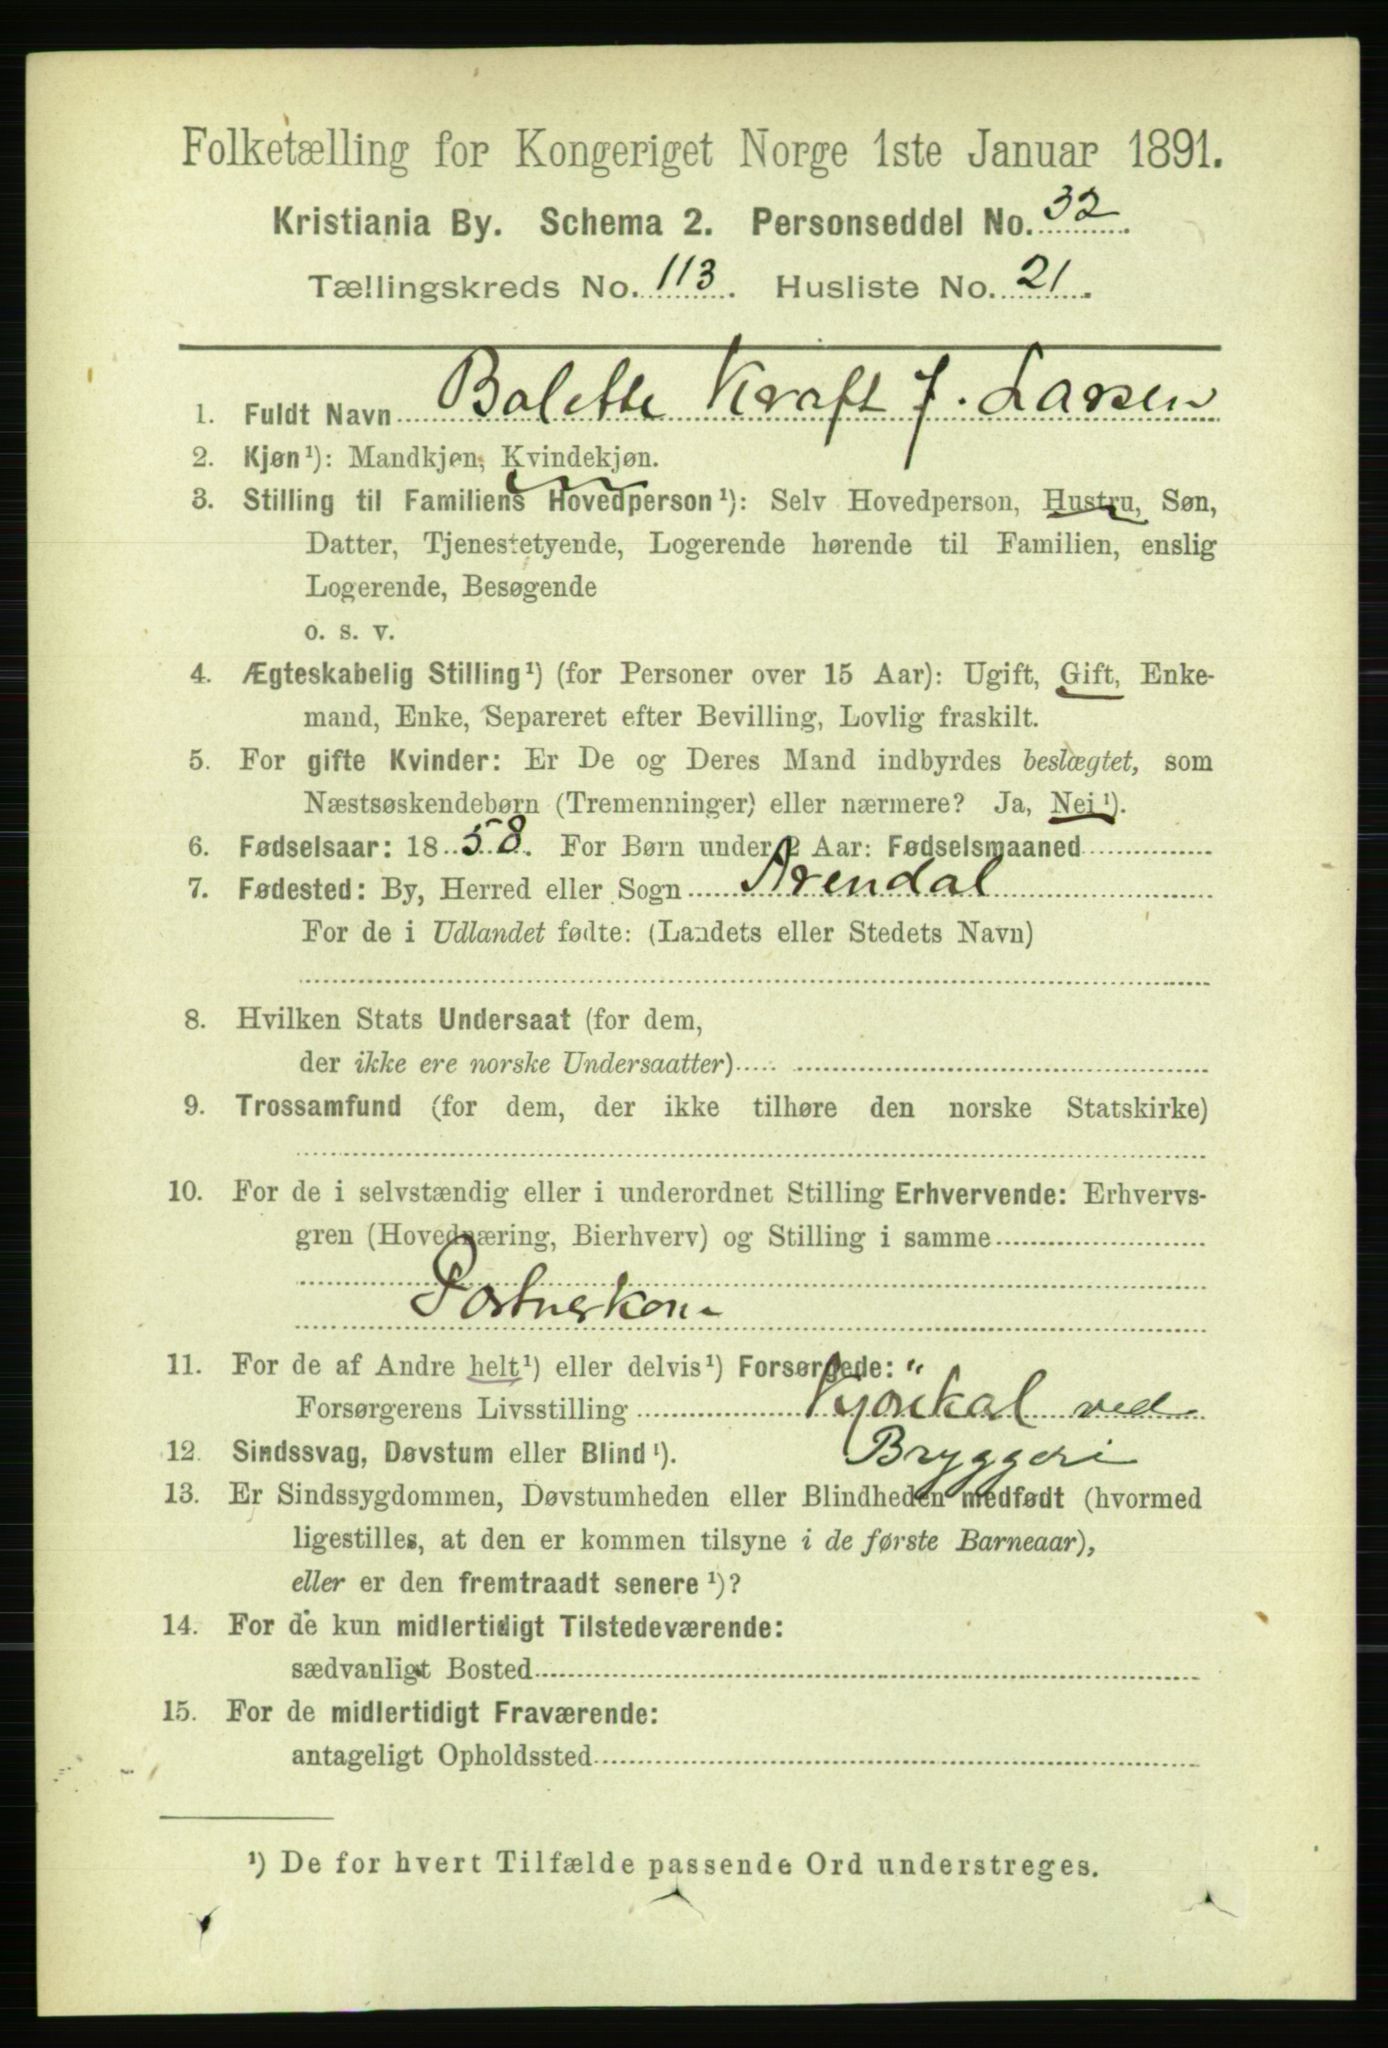 Folketælling for Kongeriget Norge 1ste Januar 1891.
Kristiania By. Schema 2. Personseddel No. 32.
Tællingskreds No. 113. Husliste No. 21.
1. Fuldt Navn Bolette Kraft J. Larsen
2. Kjøn¹): Mandkjøn, Kvindekjøn.
3. Stilling til Familiens Hovedperson¹): Selv Hovedperson, Hustru, Søn,
Datter, Tjenestetyende, Logerende hørende til Familien, enslig
Logerende, Besøgende
o. s. v.
4. Ægteskabelig Stilling¹) (for Personer over 15 Aar): Ugift, Gift, Enke-
mand, Enke, Separeret efter Bevilling, Lovlig fraskilt.
5. For gifte Kvinder: Er De og Deres Mand indbyrdes beslægtet, som
Næstsøskendebørn (Tremenninger) eller nærmere? Ja, Nei¹).
6. Fødselsaar: 1858. For Børn under 2 Aar: Fødselsmaaned
7. Fødested: By, Herred eller Sogn Arendal
For de i Udlandet fødte: (Landets eller Stedets Navn)
8. Hvilken Stats Undersaat (for dem,
der ikke ere norske Undersaatter)
9. Trossamfund (for dem, der ikke tilhøre den norske Statskirke)
10. For de i selvstændig eller i underordnet Stilling Erhvervende: Erhvervs-
gren (Hovednæring, Bierhverv) og Stilling i samme
11. For de af Andre helt¹) eller delvis¹) Forsørgede: "
Forsørgerens Livsstilling ved
Bryggeri
12. Sindssvag, Døvstum eller Blind¹).
13. Er Sindssygdommen, Døvstumheden eller Blindheden medfødt (hvormed
ligestilles, at den er kommen tilsyne i de første Barneaar),
eller er den fremtraadt senere¹)?
14. For de kun midlertidigt Tilstedeværende:
sædvanligt Bosted
15. For de midlertidigt Fraværende:
antageligt Opholdssted
¹) De for hvert Tilfælde passende Ord understreges.